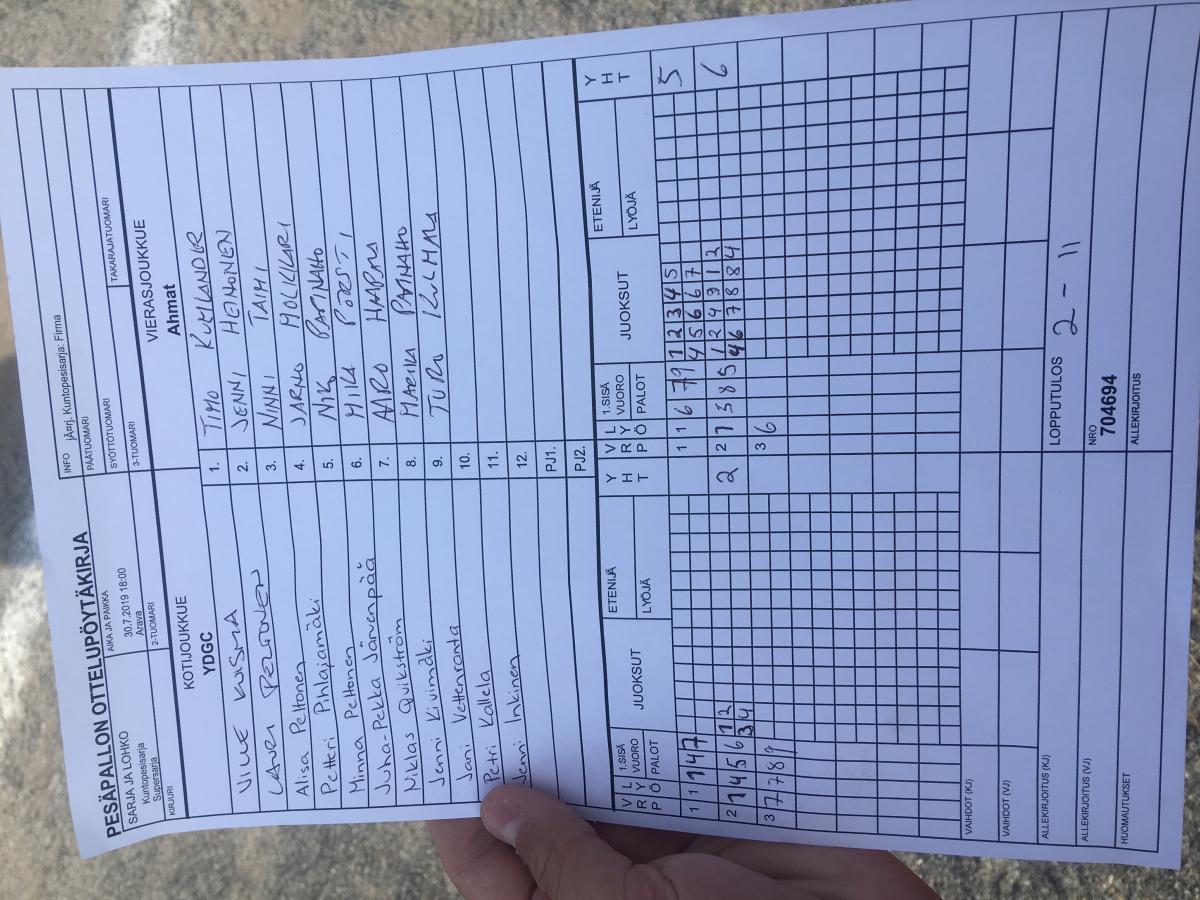 PESÄPALLON OTTELUPÖYTÄKIRJA
INFO jÄ¤rj. Kuntopesisarja: Firma
SARJA JA LOHKO
Kuntopesisarja
Supersarja
AIKA JA PAIKKA
30.7.2019 18:00
Arava
PÄÄTUOMARI
SYÖTTÖTUOMARI
TAKARAJATUOMARI
KIRJURI
2-TUOMARI
3-TUOMARI
KOTIJOUKKUE
YDGC
VIERASJOUKKUE
Ahmat
VILLE KUISMA
1. TIMO KUMLANDER
LAURI PELTONEN
2. JENNI HEINONEN
Alisa Peltonen
3. NINNI TAIMI
Petteri Pihlajamäki
4. JARNO MOLKKARI
Minna Peltonen
5. NIKO PAGNAHO
Juha-Pekka Järvenpää
6. MIIKA PÖRSTI
Niklas Quikström
7. AARO
Jenni Kivimäki
8. MARIKA
Jani Vettenranta
9. TURO KULMALA
Petri Kallela
10.
Jenni Inkinen
11.
12.
PJ1.
PJ2.
V R P
L Y Ö
1.SISÄ VUORO PALOT
JUOKSUT
ETENIJÄ
LYÖJÄ
Y H T
V R P
L Y Ö
1.SISÄ VUORO PALOT
JUOKSUT
ETENIJÄ
LYÖJÄ
Y H T
1 1 1 4 7
1 1 6 7 9 1 2 3 4 5 5
4 5 6 6 7
2 7 4 5 6 1 2 2
3 4
2 7 3 8 5 1 2 4 9 1 2 6
4 6 7 8 8 4
3 7 7 8 9
3 6
VAIHDOT (KJ)
VAIHDOT (VJ)
ALLEKIRJOITUS (KJ)
LOPPUTULOS 2 - 11
ALLEKIRJOITUS (VJ)
NRO
704694
HUOMAUTUKSET
ALLEKIRJOITUS